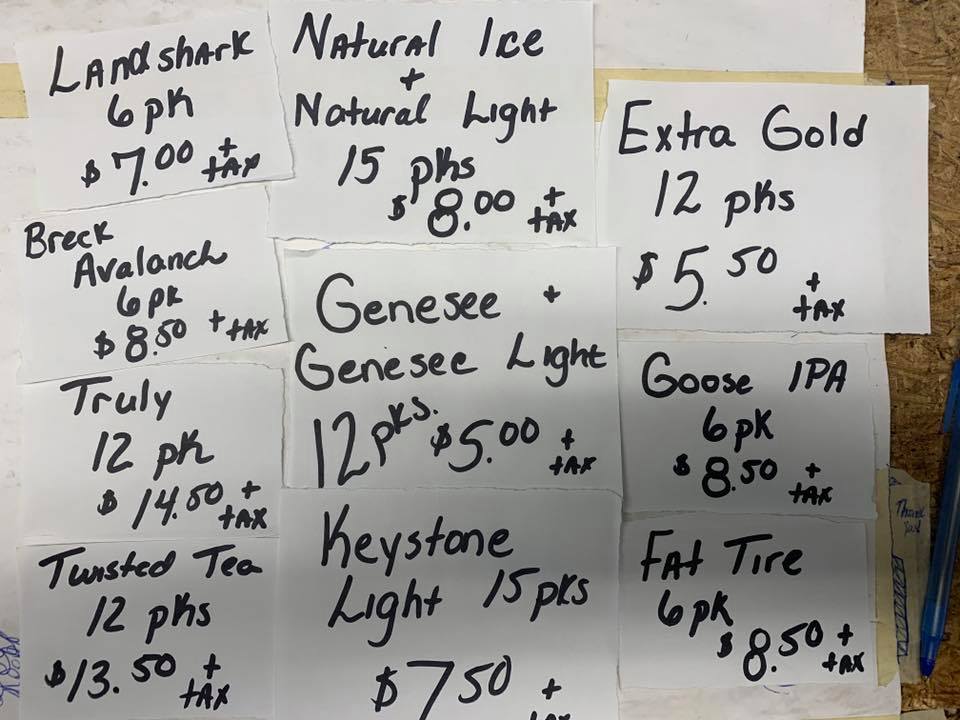 Landshark
6 pk
$7.00 + tax
Natural Ice
+
Natural Light
15 pks
$8.00 + tax
Extra Gold
12 pks
$5.50 + tax
Breck
Avalanch
6 pk
$8.50 + tax
Genesee +
Genesee Light
12 pks. $5.00 + tax
Goose IPA
6 pk
$8.50 + tax
Truly
12 pk
$14.50 + tax
Keystone
Light 15 pks
$7.50 +
Twisted Tea
12 pks
$13.50 + tax
Fat Tire
6 pk
$8.50 + tax
Thank
you